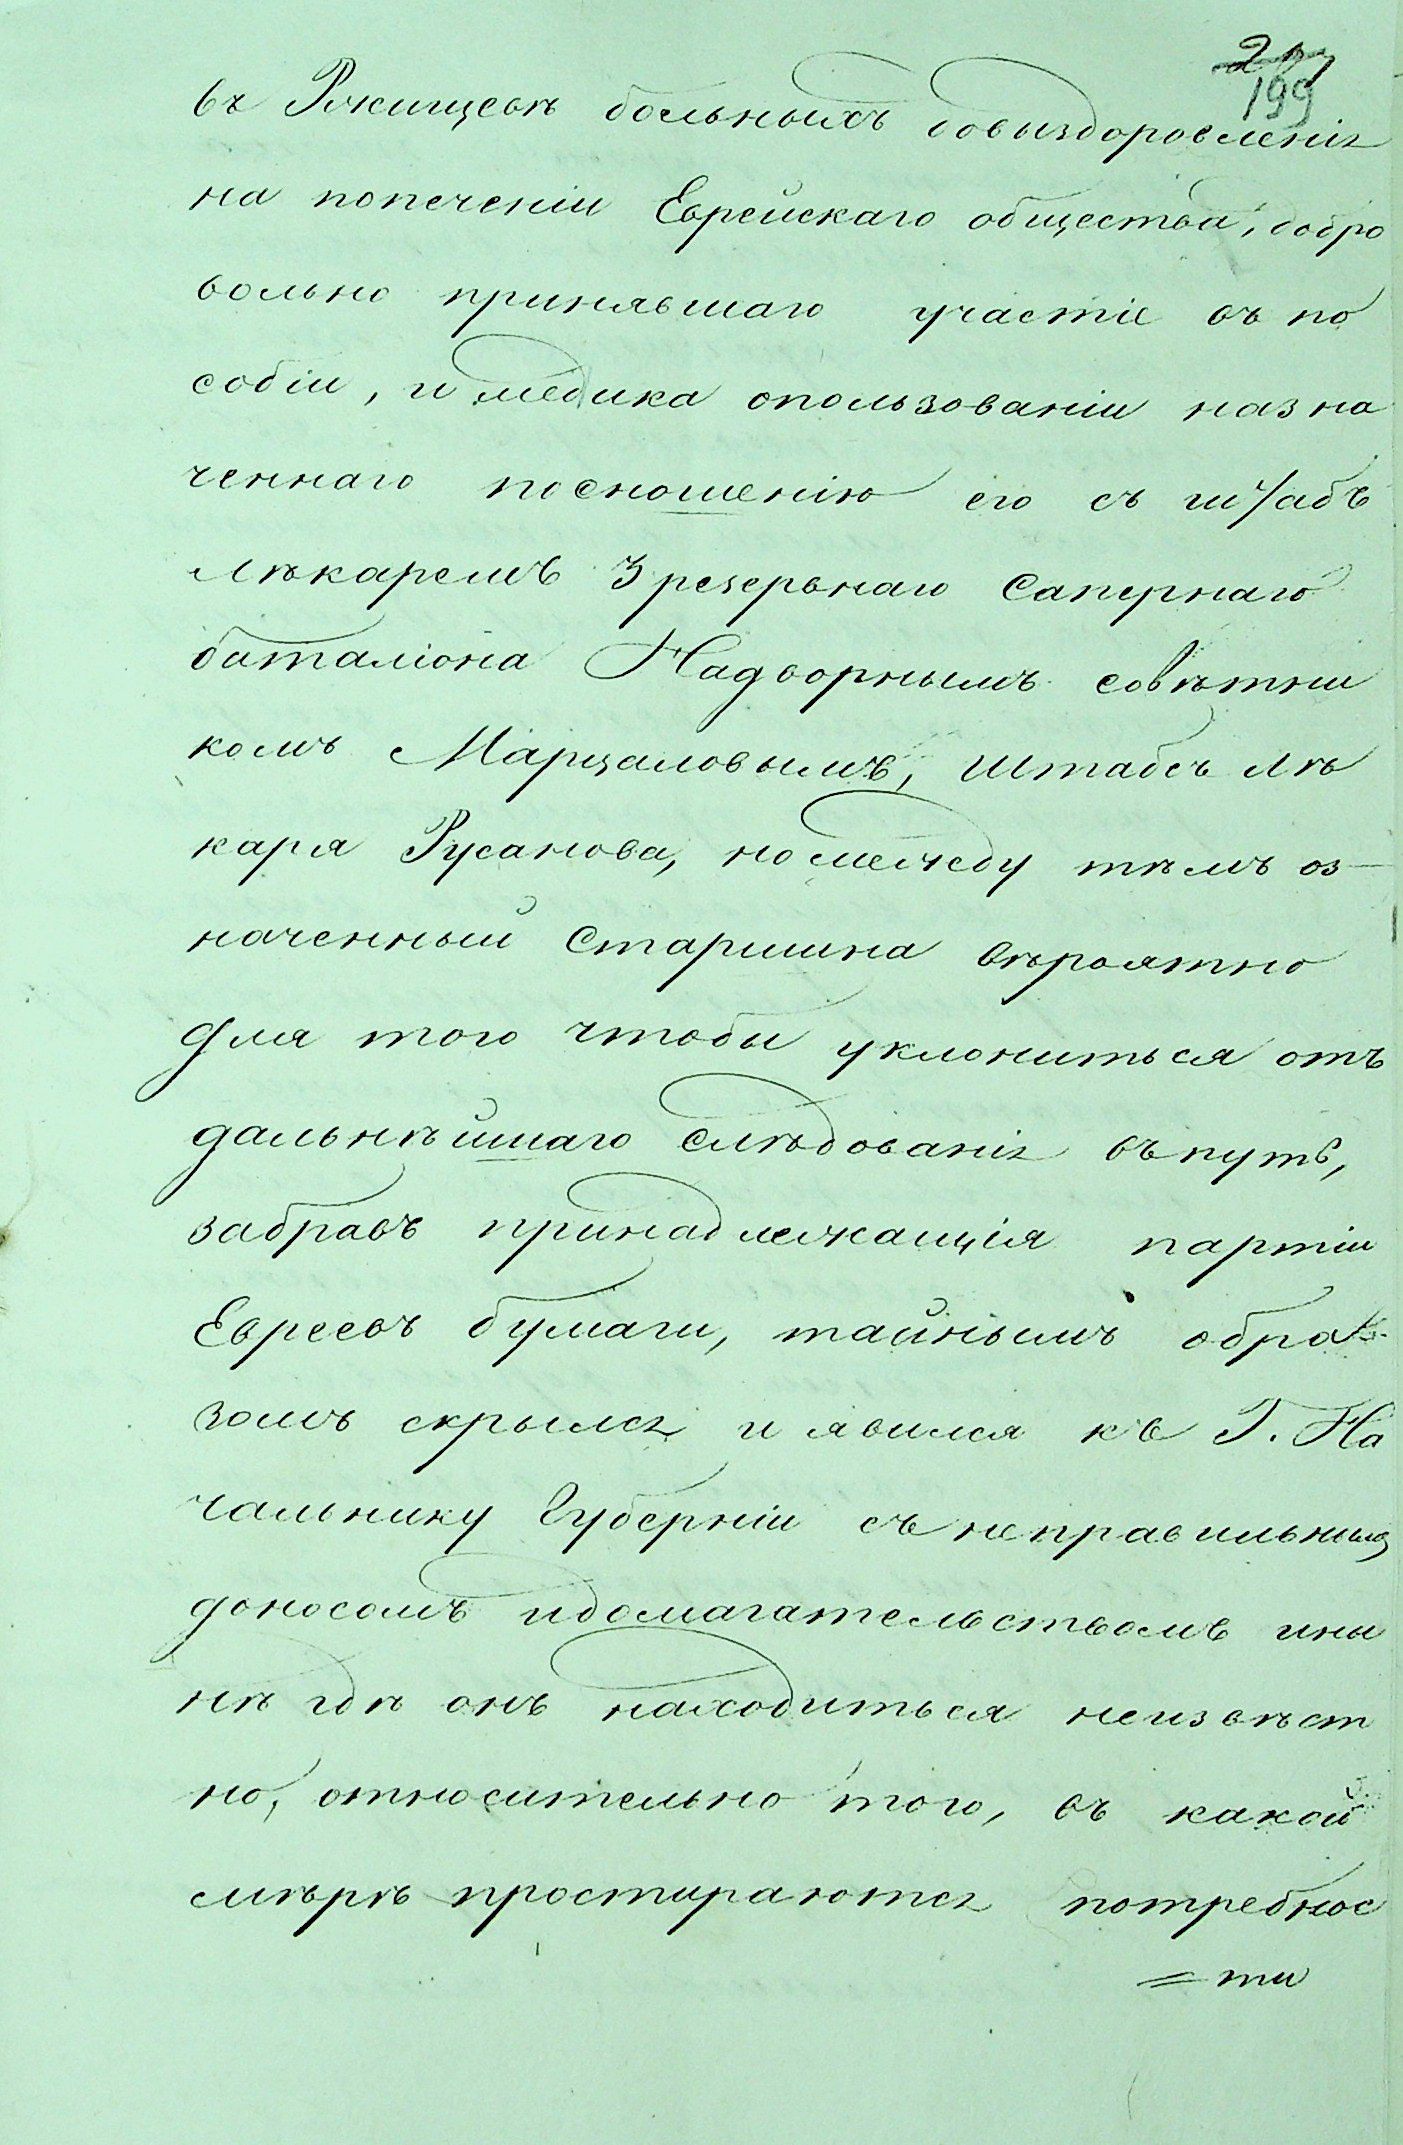 199
въ Ржищевѣ больныхъ довыздоровленія
на попеченіи Еврейскаго общества, добро
вольно принявшаго участіе въ по
собіи, и медика опользованіи назна
ченнаго посношенію его съ штабъ
лѣкаремъ 3 резервнаго Сапернаго
баталіона Надворнымъ совѣтни
комъ Марцаловымъ, штабсъ лѣ
каря Русанова, но между тѣмъ оз
наченный Старшина вѣроятно
для того чтобы уклониться отъ
дальнѣйшаго слѣдованія въ путь,
забравъ принадлежащія партіи
Евреевъ бумаги, тайнымъ обра
зомъ скрылся и явился къ Г. На
чальнику Губерніи съ неправильнымъ
доносомъ идомагательствомъ ины
нѣ гдѣ онъ находиться неизвѣст
но, относительно того, въ какой
мѣрѣ простираются потребнос
=ти